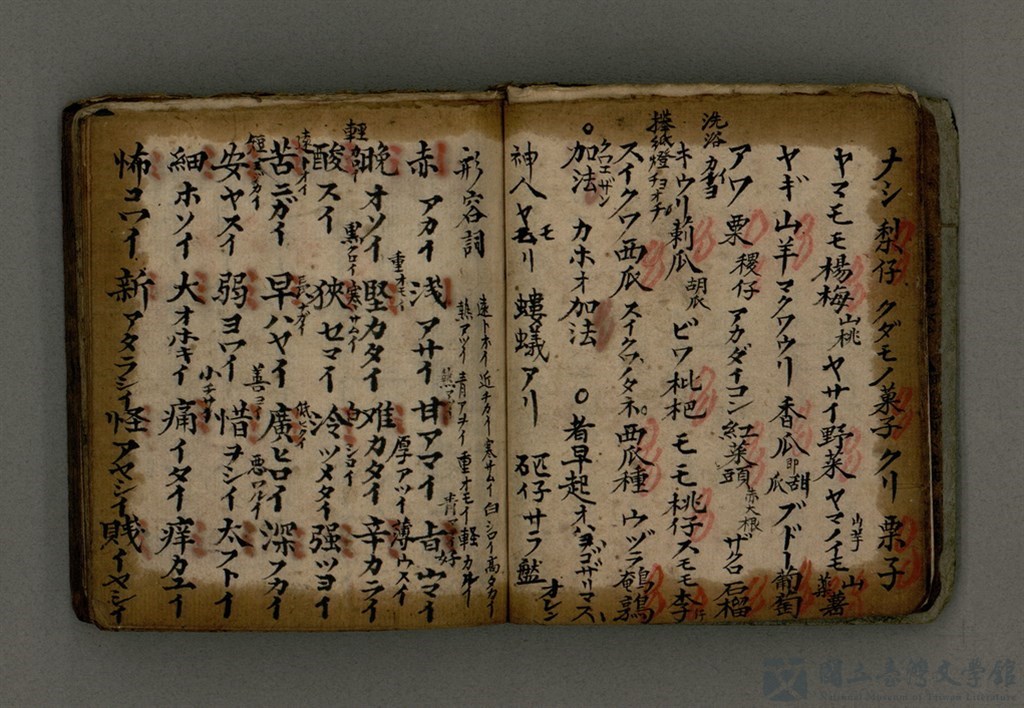 ナシ 梨仔 クダモノ菓子 クリ 栗子
ヤマモモ楊梅 山桃 ヤサイ野菜 ヤマノイモ 山芋 山薯
ヤギ 山羊 マクワウリ 香瓜 即胡瓜 ブドー葡萄
アワ 粟 稷仔 アカダイコン 紅菜頭 赤大根 ザクロ 石榴
洗浴
キウリ 莿瓜 胡瓜 ビワ 枇杷 モモ 桃仔 スモモ 李
攑紙燈 チヨオチ
スイクワ 西瓜 スイクワノタネ 西瓜種 ウヅラ 鵪鶉
加法 クワエザン カホオ加法 者早起 オハヨゴザリマス
神ハ ヤモリ 螻蟻 アリ 砙仔 サラ 盤
形容詞 遠トホイ 近チカイ 寒サムイ 白シロイ 高タカイ
熱アツイ 青アヲイ 重オモイ 軽カルイ
赤 アカイ 浅 アサイ 甘 アマイ 旨 ウマイ
重オモイ 厚アツイ 薄ウスイ
晩 オソイ 堅 カタイ 难 カタイ 辛 カライ
軽 黒クロイ 寒サムイ 白シロイ
酸 スイ 狹 セマイ 冷 ツメタイ 强 ツヨイ
遠トホイ 長ナガイ 低ヒクイ
苦 ニガイ 早 ハヤイ 廣 ヒロイ 深 フカイ
短ミヂカイ 善ヨイ 悪ワルイ
安 ヤスイ 弱 ヨワイ 惜 ヲシイ 太 フトイ
小チサイ
細 ホソイ 大 オホキイ 痛 イタイ 痒 カユイ
怖 コワイ 新 アタラシイ 怪 アヤシイ 賎 イヤシイ
國立臺灣文學館
National Museum of Taiwan Literature